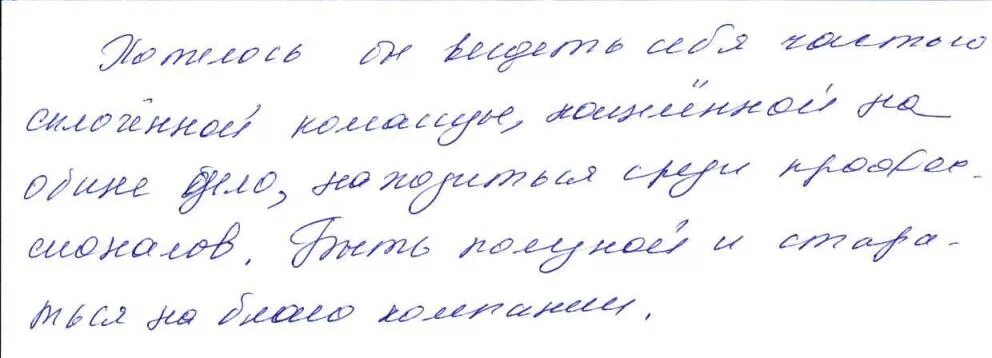 Хотелось бы видеть себя частью
сплочённой команды, нацеленной на
общее дело, находиться среди профес-
сионалов. Быть полезной и стара-
ться на благо компании.